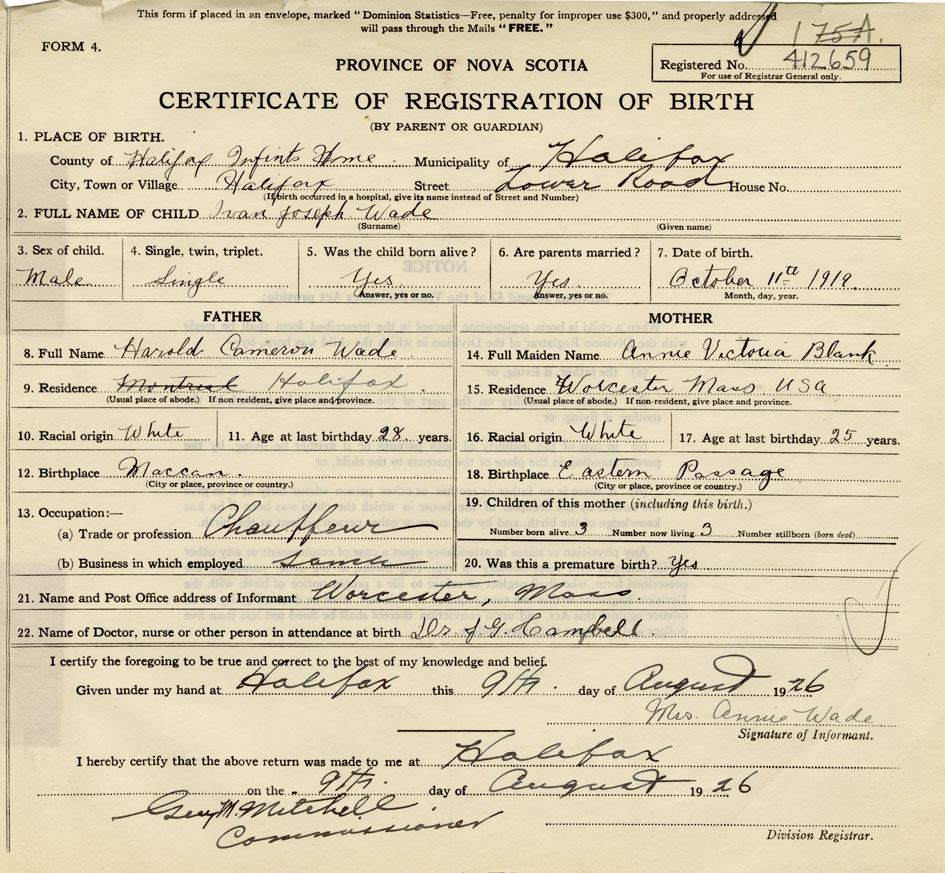 This form if placed in an envelope, marked "Dominion Statistics—Free, penalty for improper use $300," and properly addressed
will pass through the Mails "FREE."
175A.
FORM 4.
Registered No. 412659
For use of Registrar General only.
PROVINCE OF NOVA SCOTIA
CERTIFICATE OF REGISTRATION OF BIRTH
(BY PARENT OR GUARDIAN)
1. PLACE OF BIRTH.
County of Halifax Infints Home Municipality of Halifax
City, Town or Village Halifax Street Tower Road House No.
(If birth occurred in a hospital, give its name instead of Street and Number)
2. FULL NAME OF CHILD Ivan Joseph Wade
(Surname) (Given name)
3. Sex of child. 4. Single, twin, triplet. 5. Was the child born alive? 6. Are parents married? 7. Date of birth.
Male Single Yes. Yes. October 11th 1919.
Answer, yes or no. Answer, yes or no. Month, day, year.
NOTICE
FATHER MOTHER
8. Full Name Harold Cameron Wade 14. Full Maiden Name Annie Victoria Blank
9. Residence Montreal Halifax. 15. Residence Worcester Mass USA
(Usual place of abode.) If non resident, give place and province. (Usual place of abode.) If non resident, give place and province.
10. Racial origin White 11. Age at last birthday 28 years. 16. Racial origin White 17. Age at last birthday 25 years.
12. Birthplace Maccan. 18. Birthplace Eastern Passage
(City or place, province or country.) (City or place, province or country.)
13. Occupation:— 19. Children of this mother (including this birth.)
(a) Trade or profession Chauffeur Number born alive 3 Number now living 3 Number stillborn (born dead)
(b) Business in which employed same 20. Was this a premature birth? Yes
21. Name and Post Office address of Informant Worcester, Mass.
22. Name of Doctor, nurse or other person in attendance at birth Dr. J. G. Campbell.
I certify the foregoing to be true and correct to the best of my knowledge and belief.
Given under my hand at Halifax this 9th. day of August 1926
Mrs. Annie Wade
Signature of Informant.
I hereby certify that the above return was made to me at Halifax
on the 9th. day of August 1926
Geo M. Mitchell
Commissioner
Division Registrar.